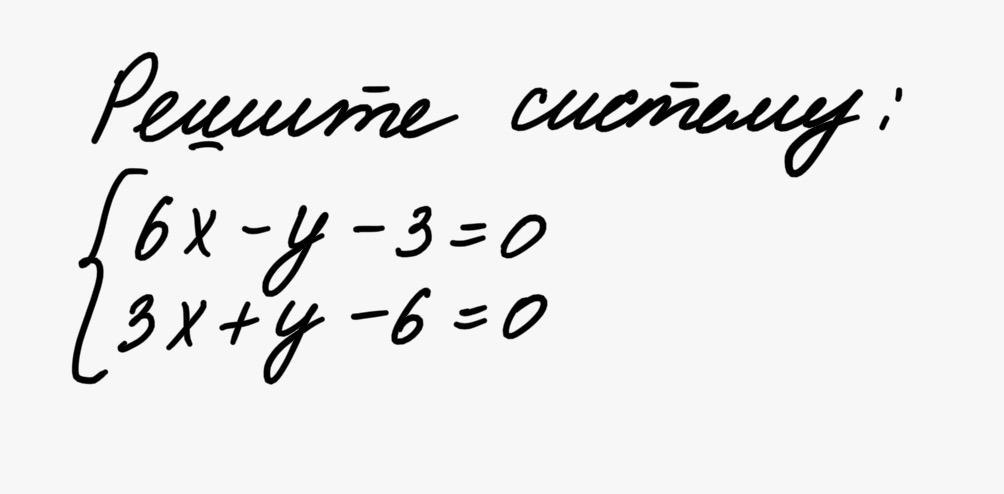 Решите систему:
6x - y - 3 = 0
3x + y - 6 = 0